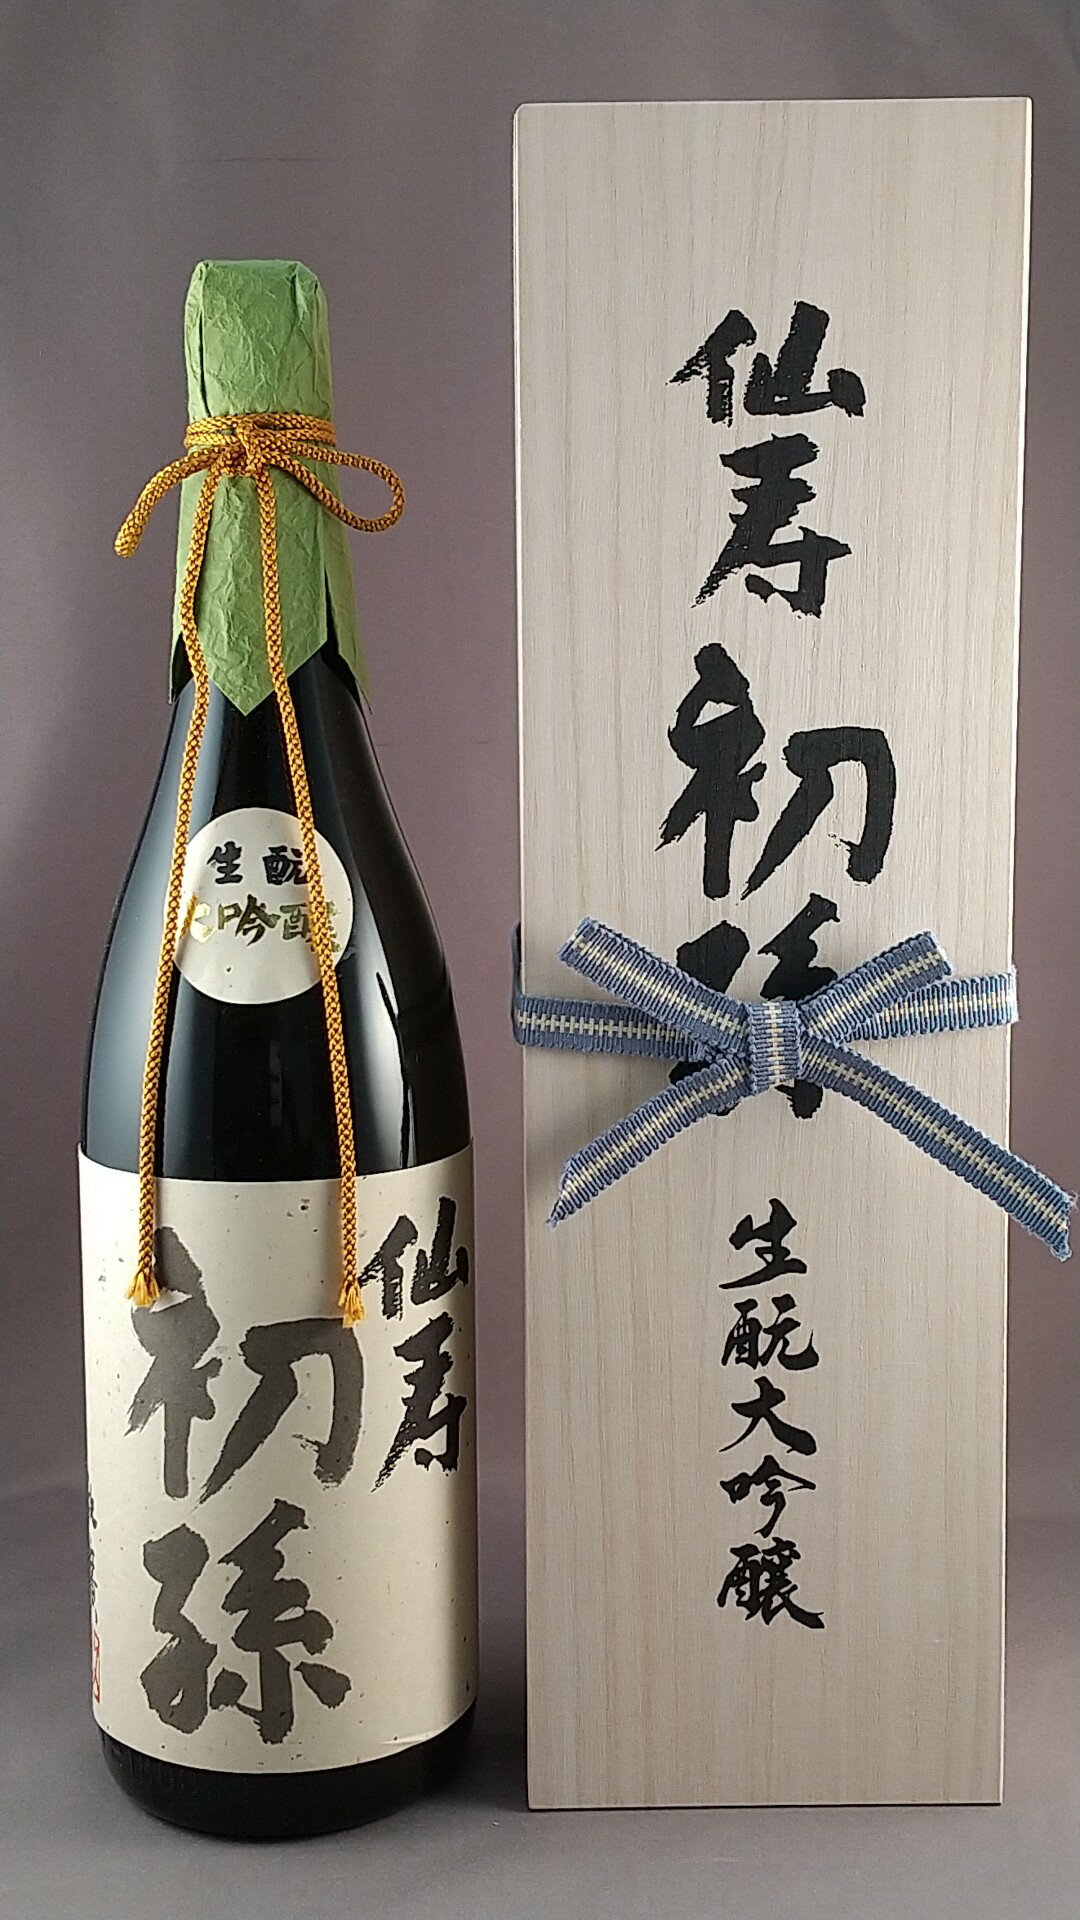 生酛
大吟醸
仙寿
初孫
仙寿 初孫
生酛大吟醸